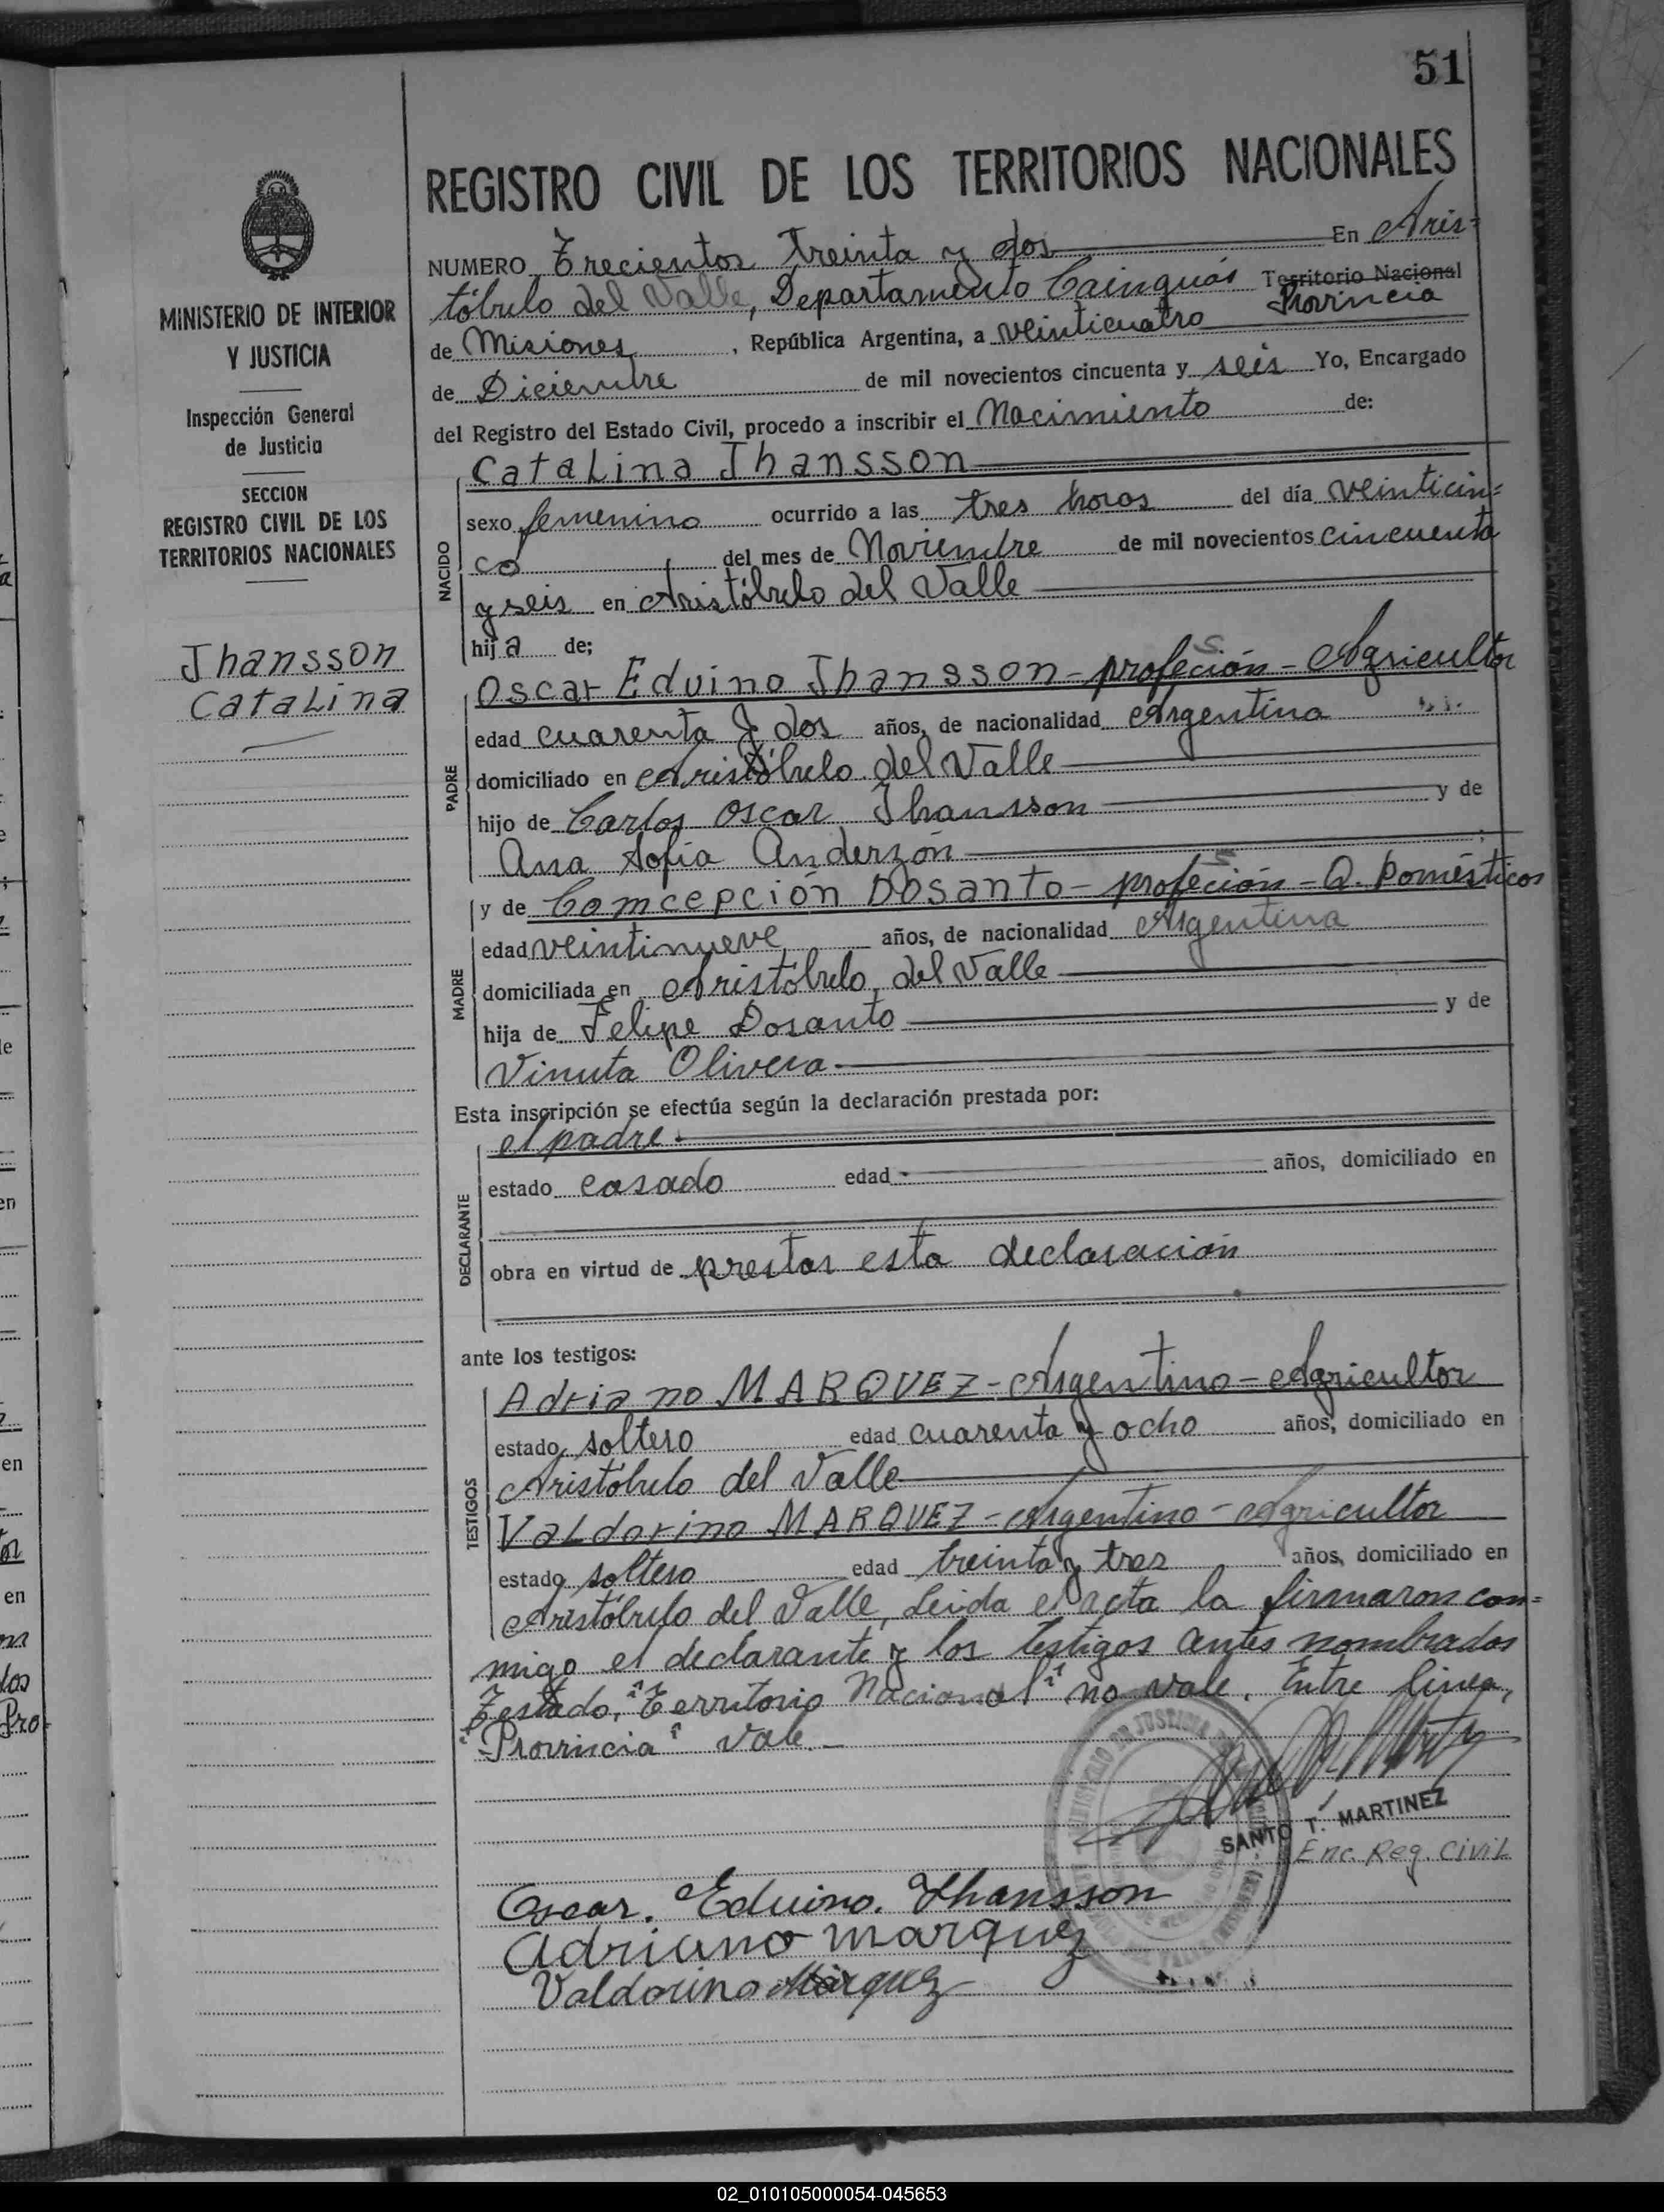 51
REGISTRO CIVIL DE LOS TERRITORIOS NACIONALES
MINISTERIO DE INTERIOR
Y JUSTICIA
Inspección General
de Justicia
SECCION
REGISTRO CIVIL DE LOS
TERRITORIOS NACIONALES
Jhansson
Catalina
NUMERO Trecientos treinta y dos En Aris=
tóbulo del Valle, Departamento Cainguás Territorio Nacional
Provincia
de Misiones, República Argentina, a veinticuatro
de Diciembre de mil novecientos cincuenta y seis Yo, Encargado
del Registro del Estado Civil, procedo a inscribir el Nacimiento de:
Catalina Jhansson
NACIDO
sexo femenino ocurrido a las tres horas del día veinticin=
co del mes de Noviembre de mil novecientos cincuenta
y seis en Aristóbulo del Valle
hija de;
PADRE
s
Oscar Eduino Jhansson - profeción - Agricultor
edad cuarenta y dos años, de nacionalidad Argentina
domiciliado en Aristóbulo del Valle
hijo de Carlos Oscar Jhansson y de
Ana Sofia Anderzón ;
MADRE
s
y de Comcepción Dosanto - profeción - Q. Domésticos
edad veintinueve años, de nacionalidad Argentina
domiciliada en Aristóbulo del Valle
hija de Felipe Dosanto y de
Vinuta Olivera
Esta inscripción se efectúa según la declaración prestada por:
DECLARANTE
el padre.
estado casado edad años, domiciliado en
obra en virtud de prestar esta declaración
ante los testigos:
TESTIGOS
Adriano MARQUEZ - Argentino - Agricultor
estado soltero edad cuarenta y ocho años, domiciliado en
Aristóbulo del Valle
Valdorino MARQUEZ - Argentino - Agricultor
estado soltero edad treinta y tres años, domiciliado en
Aristóbulo del Valle, Leida el acta la firmaron con=
migo el declarante y los testigos antes nombrados
Testado, "Territorio Nacional" no vale. Entre linea,
"Provincia" vale.-
SANTO T. MARTINEZ
Enc. Reg. Civil
Oscar. Eduino. Jhansson
adriano marquez
Valdorino Márquez
02_010105000054-045653